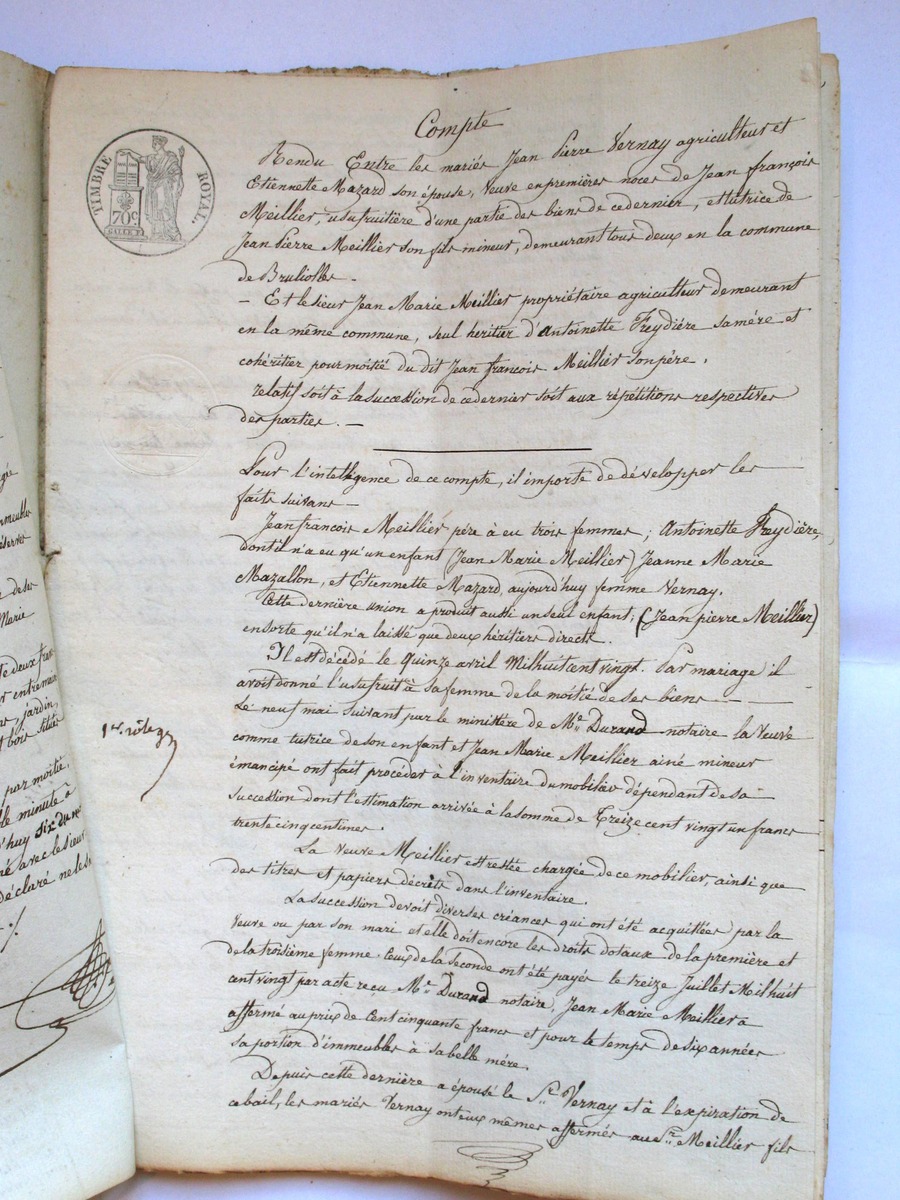 TIMBRE ROYAL
70c
Compte
Rendu Entre les mariés Jean Pierre Vernay agriculteur et
Etiennette Mazard son épouse, Veuve en premières noces de Jean françois
Meillier, usufruitière d'une partie des biens de ce dernier, et tutrice de
Jean Pierre Meillier son fils mineur, demeurant tous deux en la commune
de Brulioles.
- Et le sieur Jean Marie Meillier propriétaire agriculteur demeurant
en la même commune, seul heritier d'Antoinette Freydière sa mére et
cohéritier pour moitié du dit Jean francois Meillier son père,
relatif soit à la succession de ce dernier soit aux répétitions respectives
des parties. —
Pour l'intelligence de ce compte, il importe de développer les
faits suivans —
Jean francois Meillier père à eu trois femmes; Antoinette Freydière,
dont il n'a eu qu'un enfant (Jean Marie Meillier) Jeanne Marie
Mazallon, et Etiennette Mazard, aujourd'huy femme Vernay.
Cette dernière union a produit aussi un seul enfant; (Jean pierre Meillier)
ensorte qu'il n'a laissé que deux héritiers directs.
Il est décédé le quinze avril Milhuit cent vingt. Par mariage il
avoit donné l'usufruit à sa femme de la moitié de ses biens — —
Le neuf mai suivant par le ministère de Me. Durand notaire la Veuve
comme tutrice de son enfant et Jean Marie Meillier ainé mineur
émancipé ont fait procéder à l'inventaire du mobilier dépendant de sa
succession dont l'estimation arrivée à la somme de Treize cent vingt un francs
trente cinq centimes.
La Veuve Meillier est restée chargée de ce mobilier, ainsi que
des titres et papiers décrits dans l'inventaire.
La succession devoit diverses créances qui ont été acquittées par la
Veuve ou par son mari et elle doit encore les droits dotaux de la première et
de la troisième femme. Ceux de la seconde ont été payés le treize Juillet Milhuit
cent vingt par acte reçu Me. Durand notaire, Jean Marie Meillier a
affermé au prix de Cent cinquante francs et pour le temps de six années
sa portion d'immeubles à sa belle mére.
Depuis cette dernière a épousé le Sr. Vernay et à l'expiration de
ce bail, les mariés Vernay ont eux mêmes affermés au Sr. Meillier fils
1er. rôle
mmeubles
Marie
jardin,
par moitié
minute à
d'huy six du
né avec le sieur
déclaré ne les